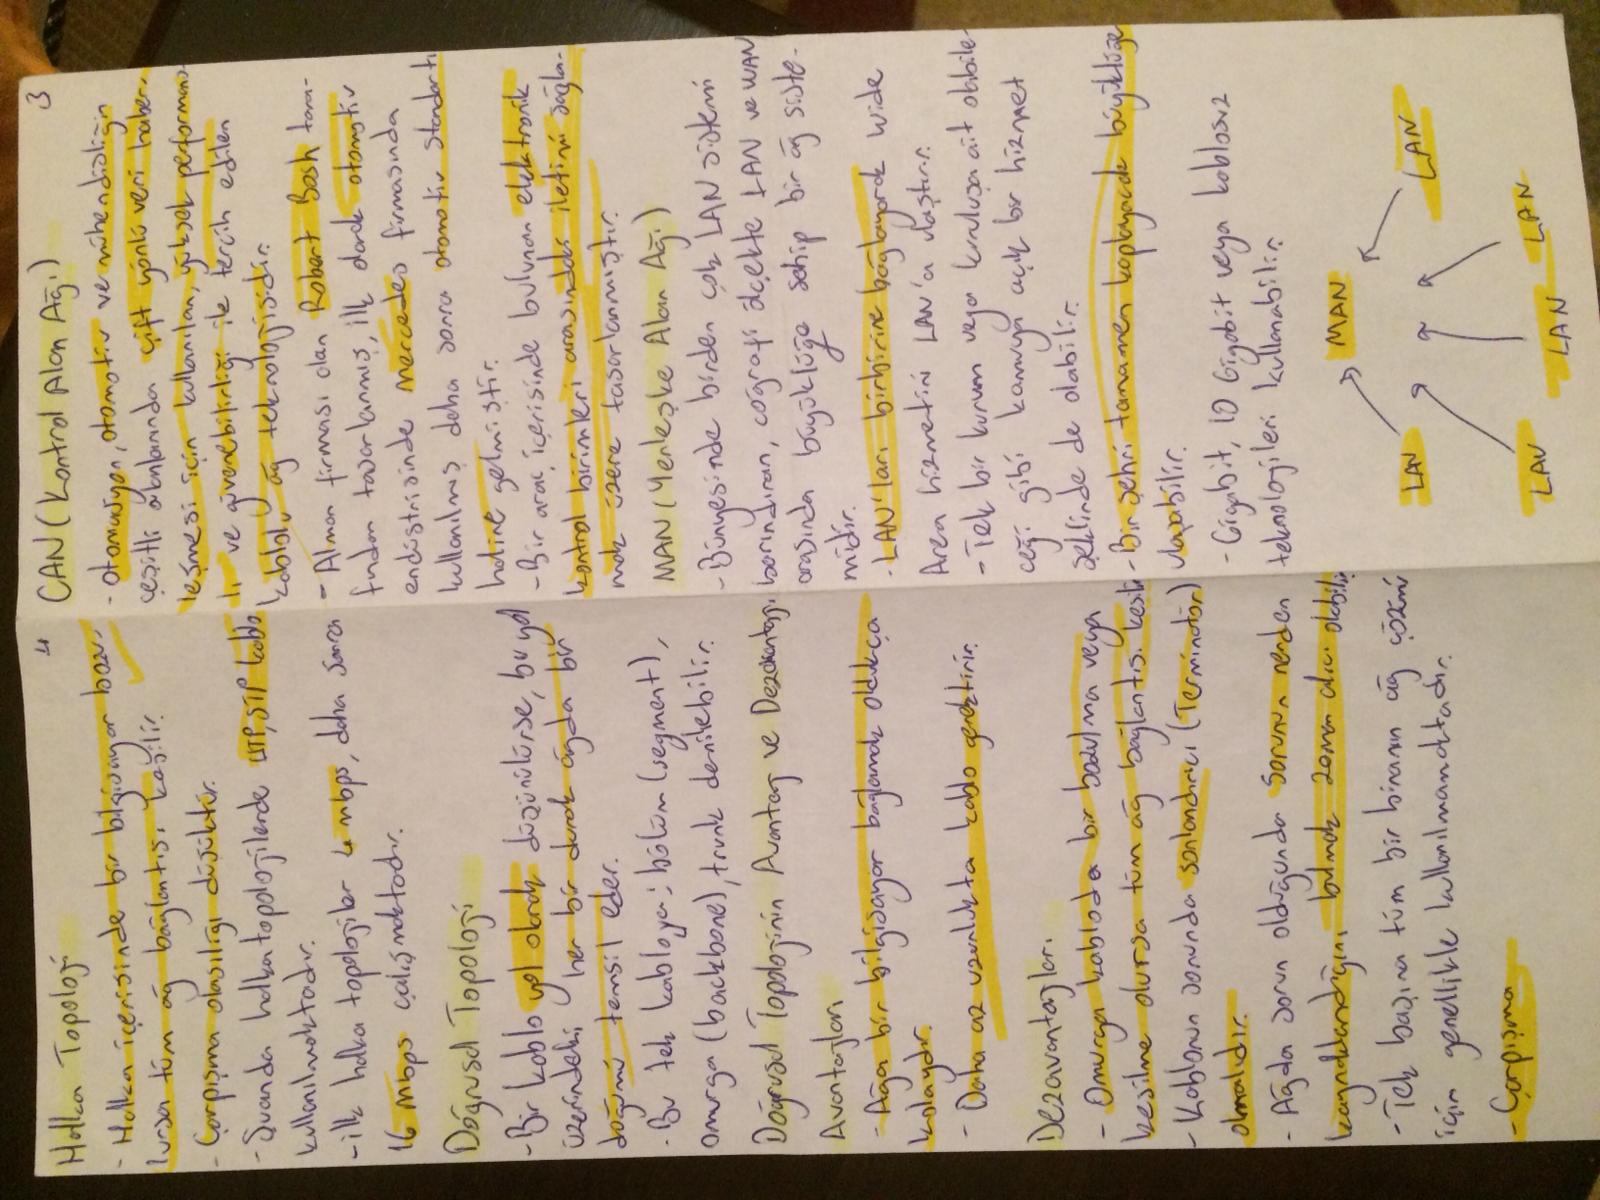 4
Halka Topoloji
- Halka içerisinde bir bilgisayar bozu-
lursa tüm ağ bağlantısı kesilir.
- Çarpışma olasılığı düşüktür.
- Şuanda halka topolojilerde UTP, STP kablo
kullanılmaktadır.
- ilk halka topolojiler 4 mbps, daha sonra
16 mbps çalışmaktadır.
Doğrusal Topoloji
- Bir kablo yol olarak düşünülürse, bu yol
üzerindeki her bir durak ağda bir
doğümü temsil eder.
- Bu tek kabloya; bölüm (segment),
omurga (backbone), trunk denilebilir.
Doğrusal Topolojinin Avantaj ve Dezavantajı
Avantajları
- Ağa bir bilgisayar bağlamak oldukça
kolaydır.
- Daha az uzunlukta kablo gerektirir.
Dezavantajları
- Omurga kabloda bir bozulma veya
kesilme olursa tüm ağ bağlantısı kesilir
- Kablonun sonunda sonlandırıcı (Terminatör)
olmalıdır.
- Ağda sorun olduğunda sorunun nerden
kaynaklandığını bulmak zaman alıcı olabilir
- Tek başına tüm bir binanın ağ çözümü
için genellikle kullanılmamaktadır.
- Çarpışma
3
CAN (Kontrol Alan Ağı)
- otomasyon, otomotiv ve mühendisliğin
çeşitli alanlarında çift yönlü veri haber-
leşmesi için kullanılan, yüksek performans-
lı ve güvenebilirliği ile tercih edilen
kablolu ağ teknolojisidir.
- Alman firması olan Robert Bosh tara-
fından tasarlanmış, ilk olarak otomotiv
endüstrisinde Mercedes firmasında
kullanılmış daha sonra otomotiv standartı
haline gelmiştir.
- Bir araç içerisinde bulunan elektronik
kontrol birimleri arasındaki iletimi sağla-
mak üzere tasarlanmıştır.
MAN (Yerleşke Alan Ağı)
- Bünyesinde birden çok LAN sistemi
barındıran, coğrafi ölçekte LAN ve WAN
arasında büyüklüğe sahip bir ağ siste-
midir.
- LAN'ları birbirine bağlayarak Wide
Area hizmetini LAN'a ulaştırır.
- Tek bir kurum veya kuruluşa ait olabile-
ceği gibi kamuya açık bir hizmet
şeklinde de olabilir.
- Bir şehri tamamen kaplayacak büyüklüğe
ulaşabilir.
- Gigabit, 10 Gigabit veya kablosuz
teknolojileri kullanabilir.
MAN
LAN LAN
LAN LAN LAN